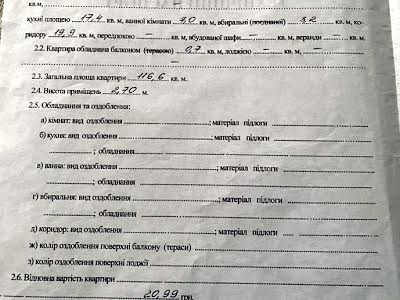 кв.м, —
кухні площею 17,4 кв. м, ванної кімнати 9,0 кв. м, вбиральні (поєднаної) 3,2 кв. м, ко-
ридору 19,9 кв. м, передпокою — кв. м, вбудованої шафи — кв. м, веранди — кв. м.
2.2. Квартира обладнана балконом (терасою) 0,7 кв. м, лоджією — кв. м.
—
2.3. Загальна площа квартири 116,6 кв. м.
2.4. Висота приміщень 2,70 м.
2.5. Обладнання та оздоблення:
а) кімнат: вид оздоблення ; матеріал підлоги
б) кухня: вид оздоблення ; матеріал підлоги
; обладнання
в) ванна: вид оздоблення ; матеріал підлоги
; обладнання
г) вбиральня: вид оздоблення ; матеріал підлоги
; обладнання
д) коридор: вид оздоблення ; матеріал підлоги
ж) колір оздоблення поверхні балкону (тераси)
з) колір оздоблення поверхні лоджії
2.6. Відновна вартість квартири
20,99 грн.